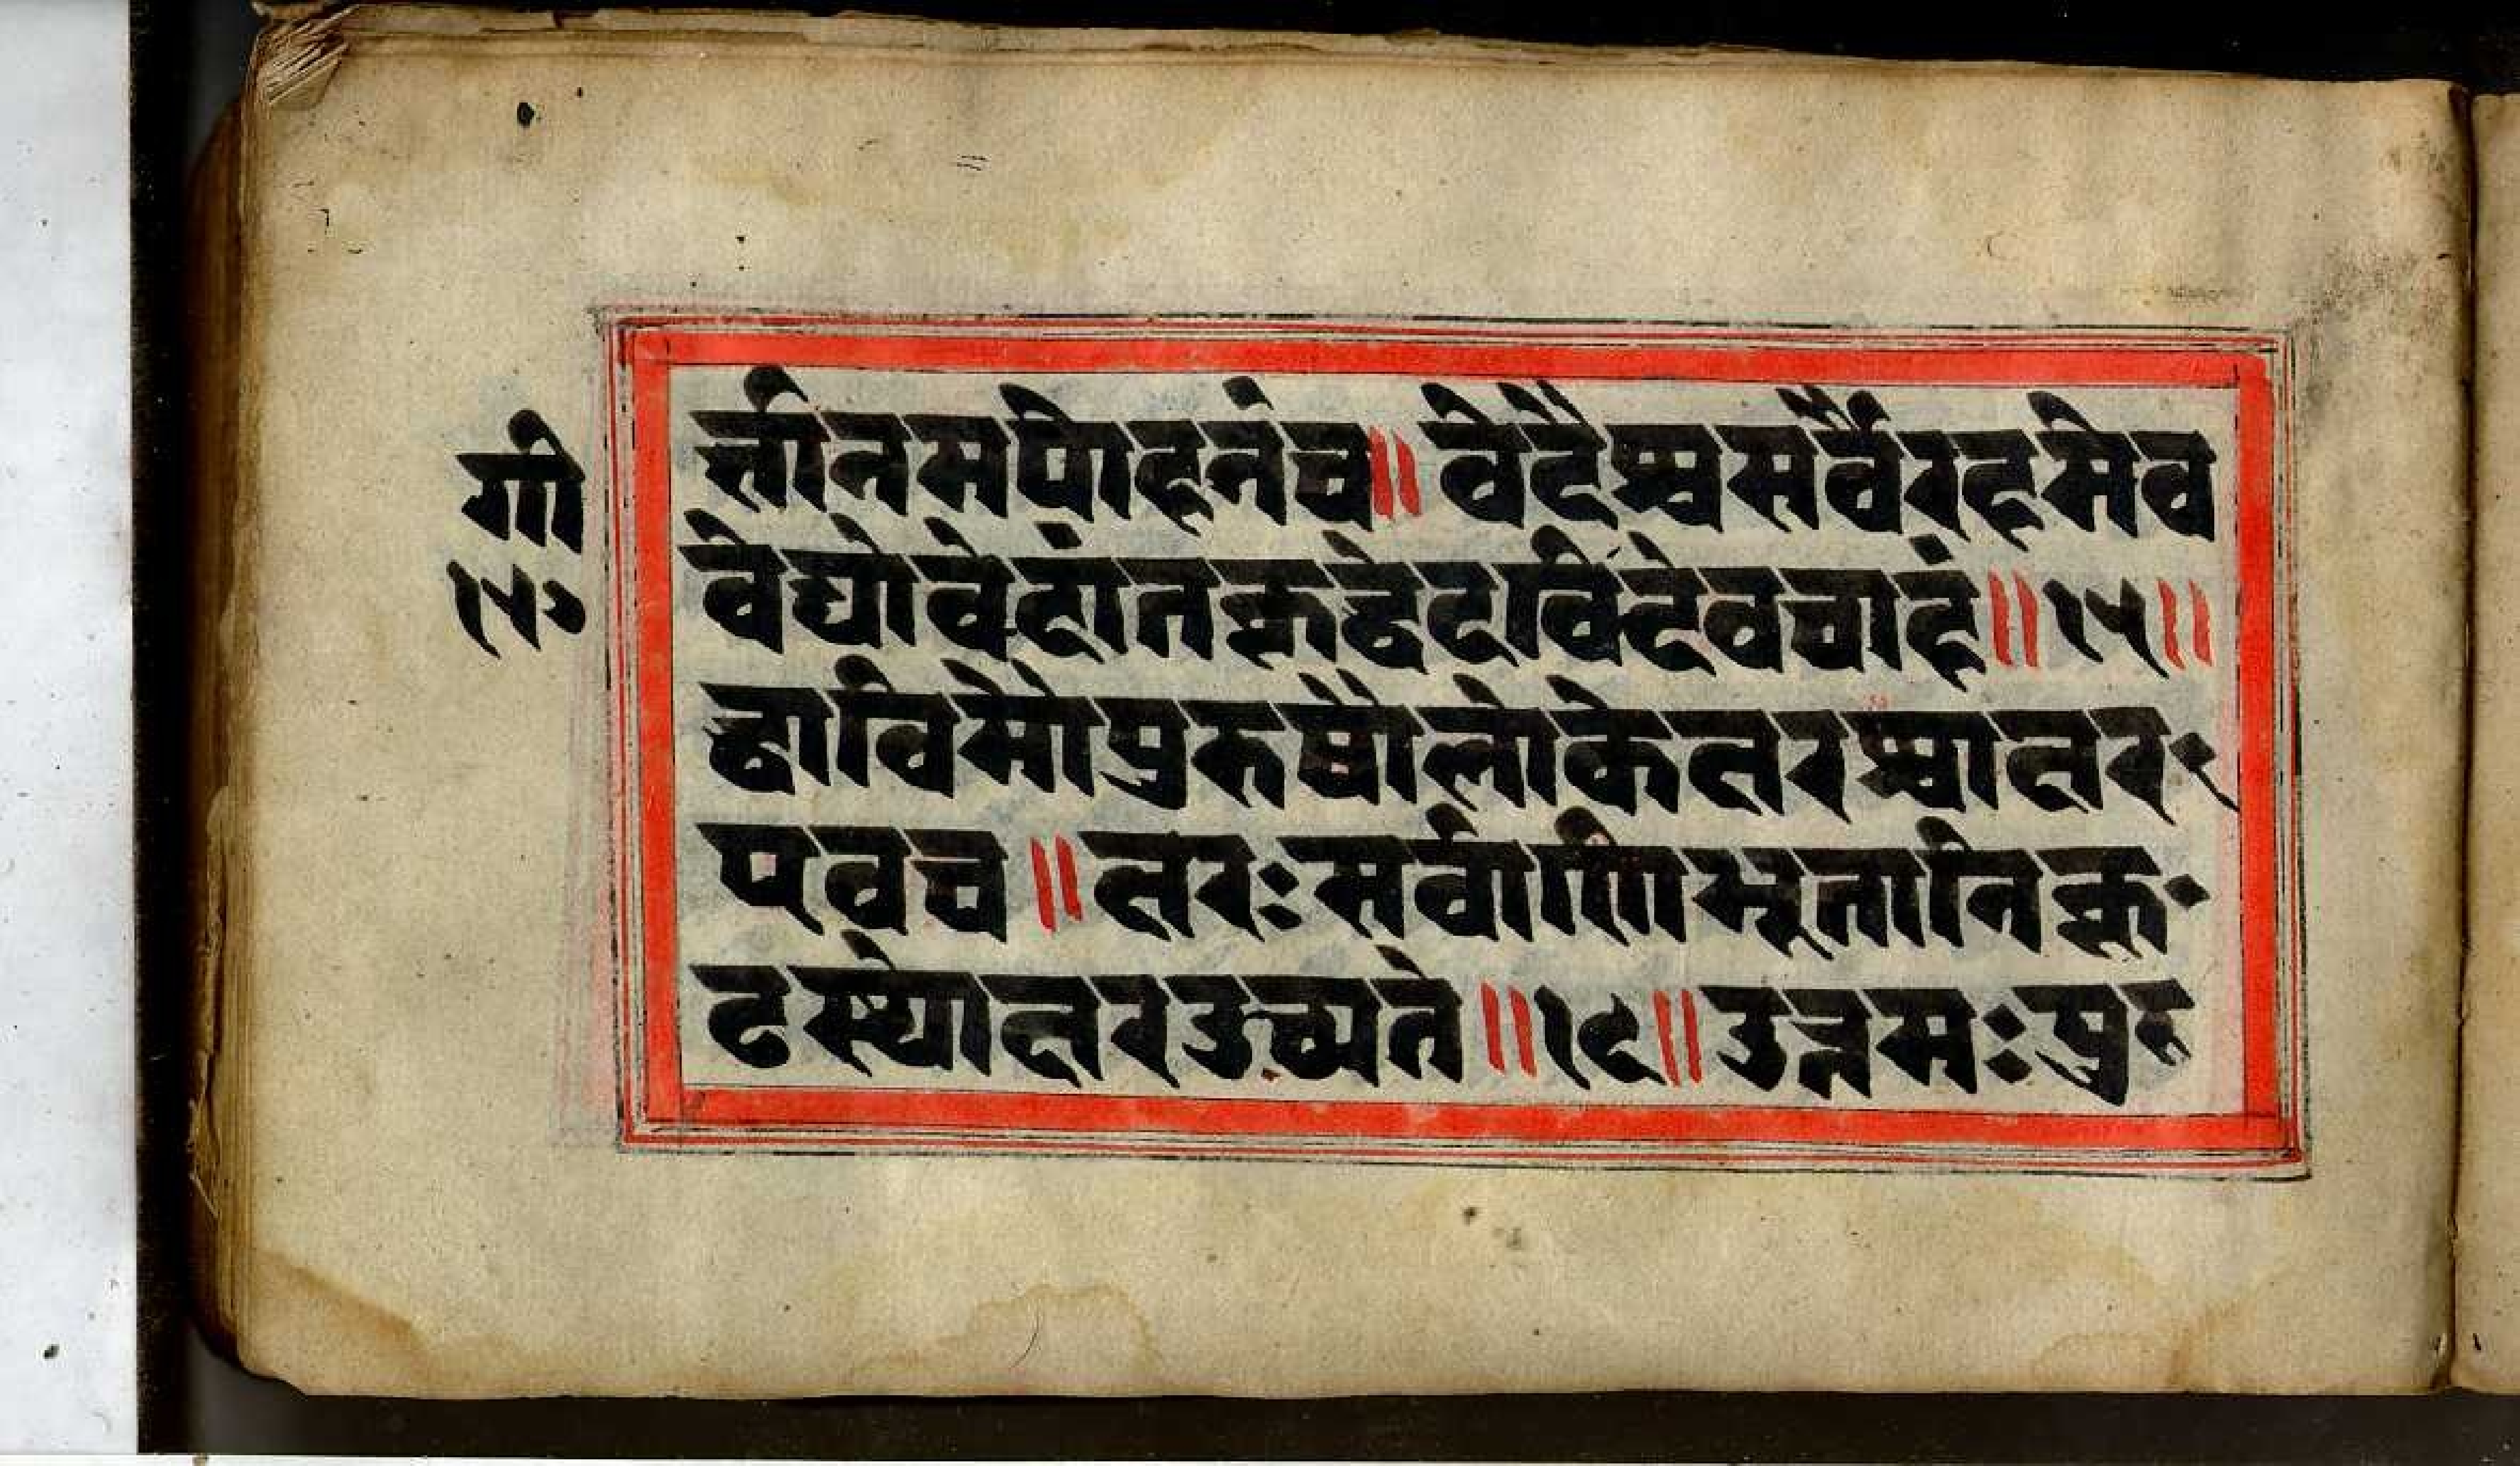 गी
१५०
त्तीनमपोहनंच॥वेदैश्चसर्वैरहमेव
वेद्योवेदांतकृद्वेदविदेवचाहं॥१५॥
द्वाविमौपुरुषौलोकेक्षरश्चाक्षरः
एवच॥क्षरःसर्वाणिभूतानिकू
टस्थोक्षरउच्यते॥१६॥उत्तमःपुरु